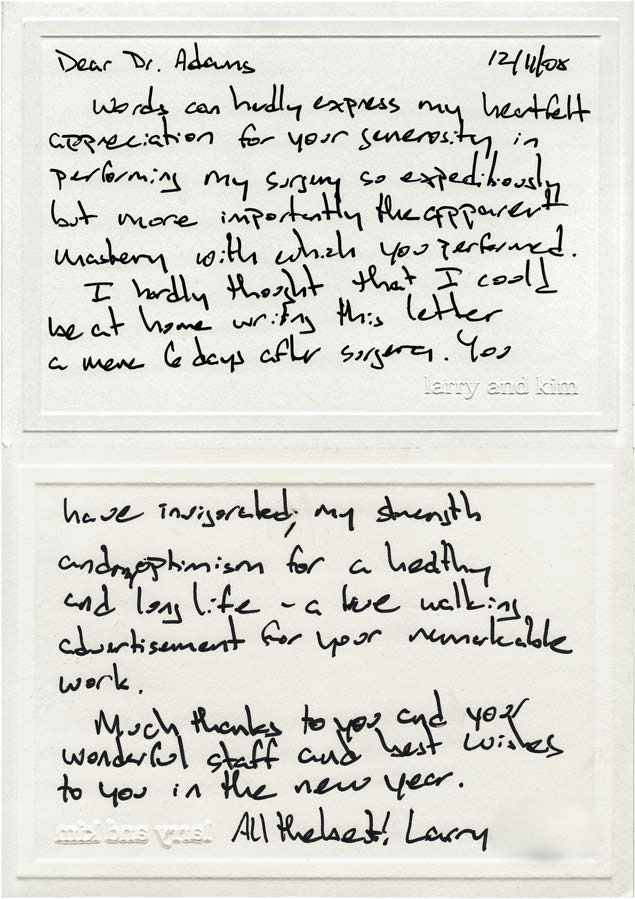 Dear Dr. Adams 12/11/08
Words can hardly express my heartfelt
appreciation for your generosity in
performing my surgery so expeditiously
but more importantly the apparent
mastery with which you performed.
I hardly thought that I could
be at home writing this letter
a mere 6 days after surgery. You
larry and kim
have invigorated, my strength
and my optimism for a healthy
and long life - a live walking
advertisement for your remarkable
work.
Much thanks to you and your
wonderful staff and best wishes
to you in the new year.
larry and kim
All the best! Larry